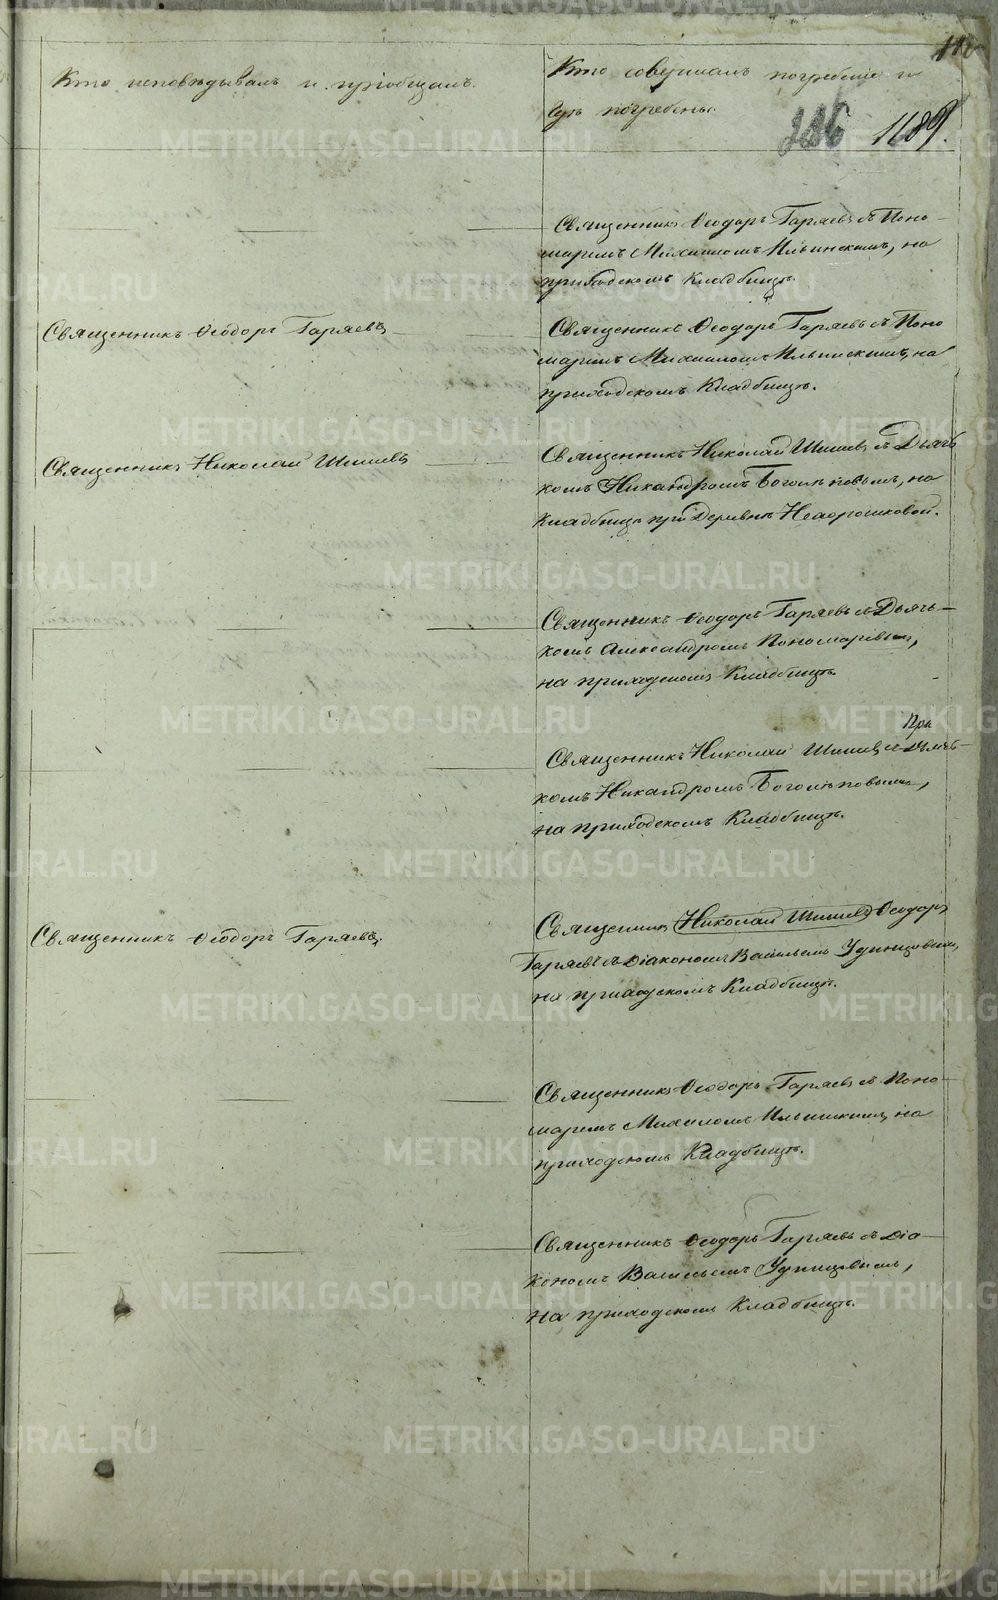 Кто исповѣдывалъ и пріобщалъ.
Кто совершалъ погребеніе и
гдѣ погребены.
1189.
Священникъ Ѳеодоръ Гаряевъ съ Поно-
маремъ Михаиломъ Ильинскимъ, на
приходскомъ Кладбищѣ.
Священникъ Ѳеодоръ Гаряевъ
Священникъ Ѳеодоръ Гаряевъ съ Поно
маремъ Михаиломъ Ильинскимъ, на
приходскомъ Кладбищѣ.
Священникъ Николай Шишевъ
Священникъ Николай Шишевъ съ Дьяч
комъ Никандромъ Боголѣповымъ, на
Кладбищѣ при Деревнѣ
Священникъ Ѳеодоръ Гаряевъ съ Дьяч-
комъ Александромъ Пономаревымъ,
на приходскомъ Кладбищѣ.
Священникъ Николай Шишевъ съ Дьяч-
комъ Никандромъ Боголѣповымъ,
на приходскомъ Кладбищѣ.
Священникъ Ѳеодоръ Гаряевъ.
Священникъ Николай Шишевъ Ѳеодоръ
Гаряевъ съ Діакономъ Васильемъ Удинцовымъ,
на приходскомъ Кладбищѣ.
Священникъ Ѳеодоръ Гаряевъ съ Поно-
маремъ Михаиломъ Ильинскимъ, на
приходскомъ Кладбищѣ.
Священникъ Ѳеодоръ Гаряевъ съ Діа-
кономъ Васильемъ Удинцовымъ,
на приходскомъ Кладбищѣ.
METRIKI.GASO-URAL.RU